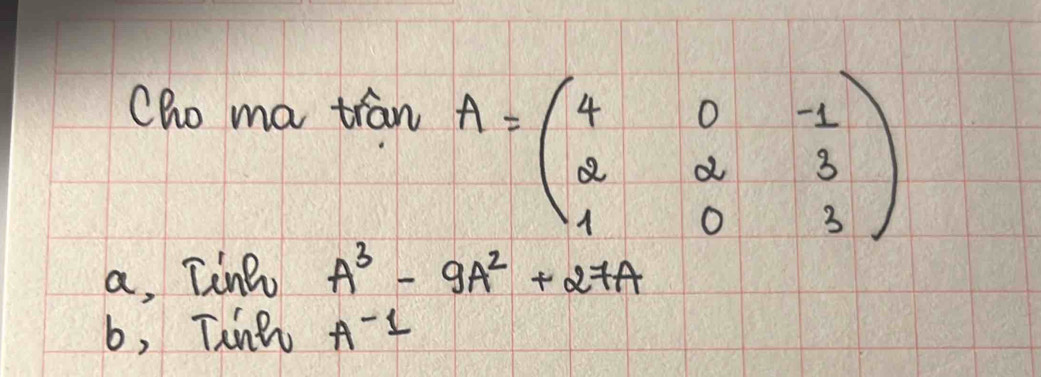 Cho ma trận A = ( 4 0 -1
2 2 3
1 0 3 )
a, Tính A³ - 9A² + 27A
b, Tính A⁻¹